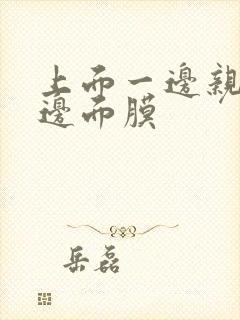 上而一邊親
邊而膜
岳磊